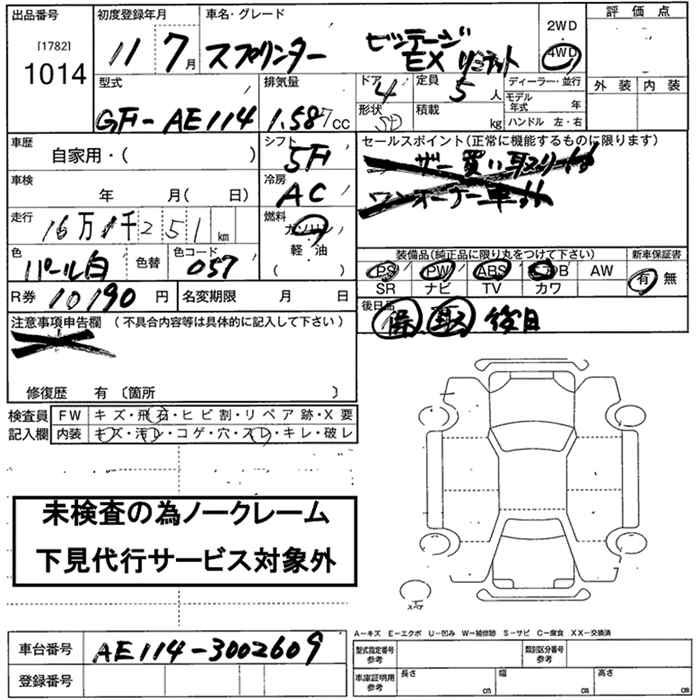 出品番号 初度登録年月 車名・グレード 2WD 評価点
[1782]
1014 11 7月 スプリンター ビンテージ 4WD
EX リミテット
外装 内装
型式 排気量 ドア 定員 ディーラー・並行
GF-AE114 1.587cc 4 5人 モデル年式 年
形状 積載 kg ハンドル 左・右
車歴 シフト セールスポイント(正常に機能するものに限ります)
自家用・( ) 5F 買い取り
車検 冷房 ワンオーナー車
年 月( 日) AC
走行 燃料
16万1千251km ガソリン
軽・油
( )
色 色替 色コード 装備品(純正品に限り丸をつけて下さい) 新車保証書
パール白 057 PS PW ABS AB AW 有 無
SR ナビ TV カワ
R券 10190円 名変期限 月 日 後日品
保 取 後日
注意事項申告欄 (不具合内容等は具体的に記入して下さい)
修復歴 有〔箇所 〕
検査員 FW キズ・飛石・ヒビ割・リペア跡・X要
記入欄 内装 キズ・汚レ・コゲ・穴・スレ・キレ・破レ
未検査の為ノークレーム
下見代行サービス対象外
スペア
A－キズ E－エクボ U－凹み W－補修跡 S－サビ C－腐食 XX－交換済
車台番号 AE114-3002609 型式指定番号 参考 類別区分番号 参考
登録番号 車庫証明用 参考 長さ cm 幅 cm 高さ cm